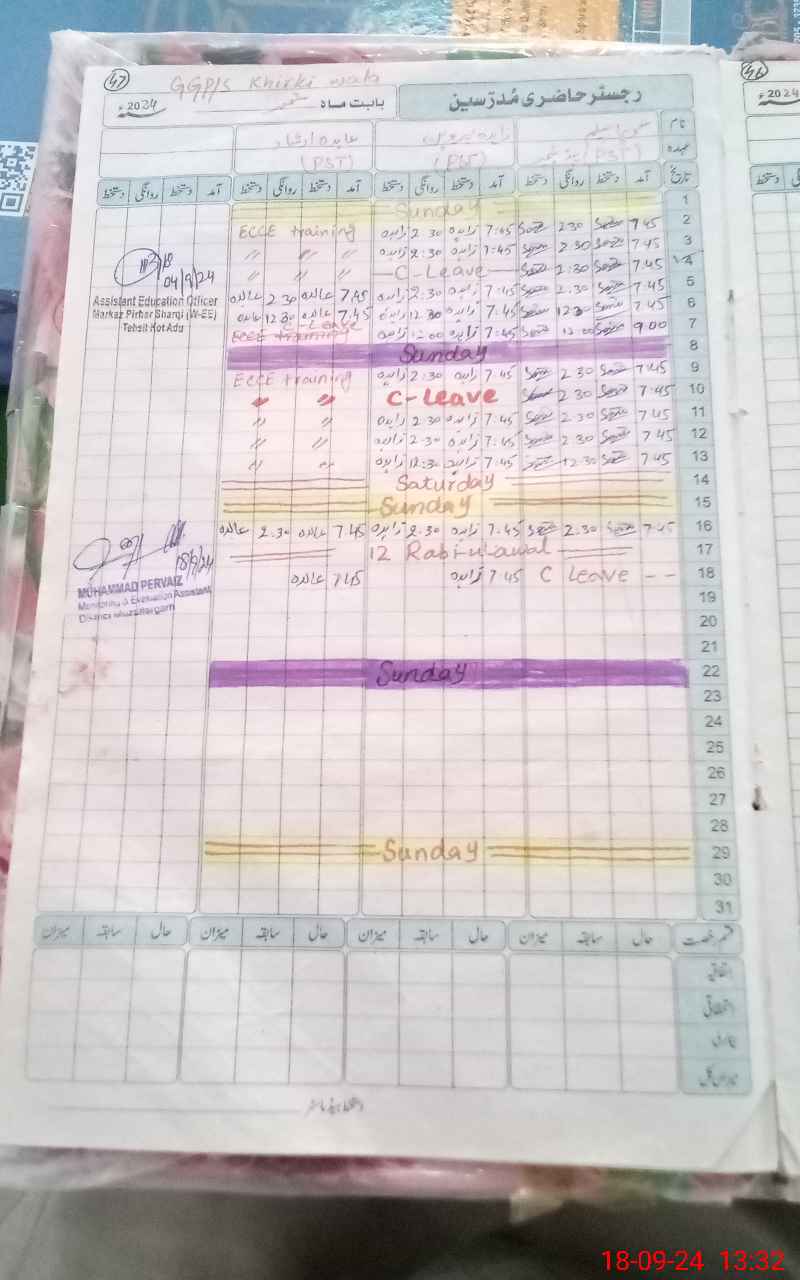 47
GGP/S Khirki wala
رجسٹر حاضری مُدرّسین
بابت ماہ ستمبر 2024ء
46
2024ء
نام زاہدہ پروین عابدہ ارشاد
عہدہ (PST) (PST) (PST)
تاریخ آمد دستخط روانگی دستخط آمد دستخط روانگی دستخط آمد دستخط روانگی دستخط آمد دستخط روانگی دستخط
1 Sunday
2 7.45 2.30 7:45 زاہدہ 2.30 زاہدہ ECCE training
3 7.45 2.30 7:45 زاہدہ 2:30 زاہدہ 〃 〃 〃
4 7.45 2.30 C-Leave 〃 〃 〃
5 7.45 2.30 7:45 زاہدہ 2:30 زاہدہ 7.45 عابدہ 2.30 عابدہ
6 7.45 12.30 7:45 زاہدہ 12.30 زاہدہ 7.45 عابدہ 12.30 عابدہ
7 9.00 12.00 7:45 زاہدہ 12.00 زاہدہ C-Leave ECCE training
8 Sunday
9 7.45 2.30 7.45 زاہدہ 2:30 زاہدہ ECCE training
10 7.45 2.30 C-Leave 〃 〃
11 7.45 2.30 7.45 زاہدہ 2.30 زاہدہ 〃 〃
12 7.45 2.30 7.45 زاہدہ 2.30 زاہدہ 〃 〃
13 7.45 12.30 7:45 زاہدہ 12:30 زاہدہ 〃 〃
14 Saturday
15 Sunday
16 7.45 2.30 7.45 زاہدہ 2.30 زاہدہ 7.45 عابدہ 2.30 عابدہ
17 12 Rabi-ul-awal
18 C Leave -- 7.45 زاہدہ 7.45 عابدہ
19
20
21
22 Sunday
23
24
25
26
27
28
29 Sunday
30
31
04/9/24
Assistant Education Officer
Markaz Pirhar Sharqi (W-EE)
Tehsil Kot Adu
18/9/24
MUHAMMAD PERVAIZ
Monitoring & Evaluation Assistant
District Muzaffargarh
قسم رخصت حال سابقہ میزان حال سابقہ میزان حال سابقہ میزان حال سابقہ میزان
اتفاقیہ
استحقاقی
بیماری
میزان کل
دستخط ہیڈ ماسٹر
18-09-24 13:32